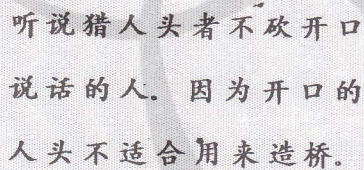 听说猎人头者不砍开口
说话的人。因为开口的
人头不适合用来造桥。